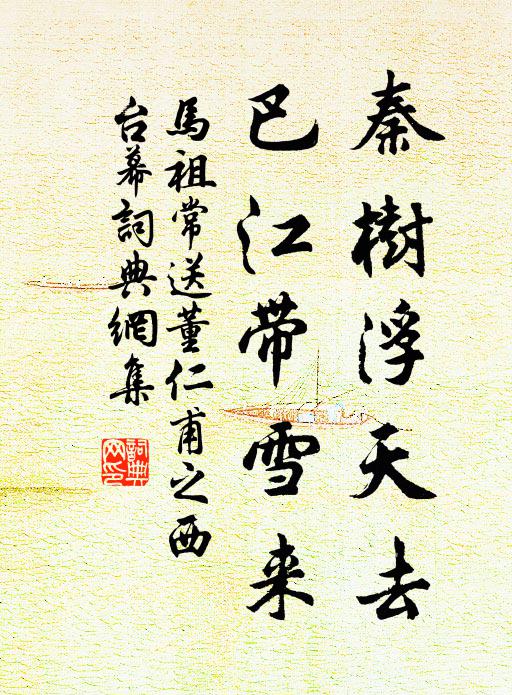 秦樹浮天去
巴江带雪来
馬祖常送董仁甫之西
台幕詞典網集
詞典
网印